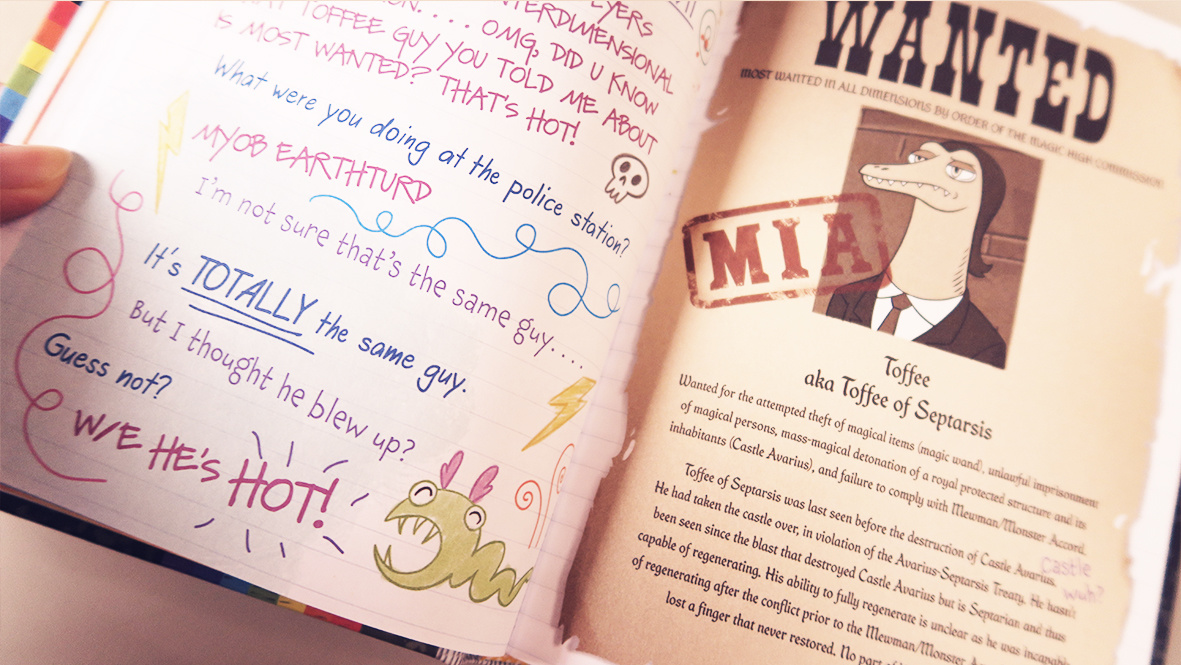 NTERDIMENSIONAL
TOFFEE GUY YOU TOLD ME ABOUT
. . . . OMG, DID U KNOW
IS MOST WANTED? THAT'S HOT!
What were you doing at the police station?
MYOB EARTHTURD
I'm not sure that's the same guy....
It's TOTALLY the same guy.
But I thought he blew up?
Guess not?
W/E HE'S HOT!
WANTED
MOST WANTED IN ALL DIMENSIONS BY ORDER OF THE MAGIC HIGH COMMISSION
MIA
Toffee
aka Toffee of Septarsis
Wanted for the attempted theft of magical items (magic wand), unlawful imprisonment
of magical persons, mass-magical detonation of a royal protected structure and its
inhabitants (Castle Avarius), and failure to comply with Mewman/Monster Accord.
Toffee of Septarsis was last seen before the destruction of Castle Avarius.
He had taken the castle over, in violation of the Avarius-Septarsis Treaty. He hasn't
been seen since the blast that destroyed Castle Avarius but is Septarian and thus
capable of regenerating. His ability to fully regenerate is unclear as he was incapable
of regenerating after the conflict prior to the Mewman/Monster
lost a finger that never restored. No part of
Castle
wuh?